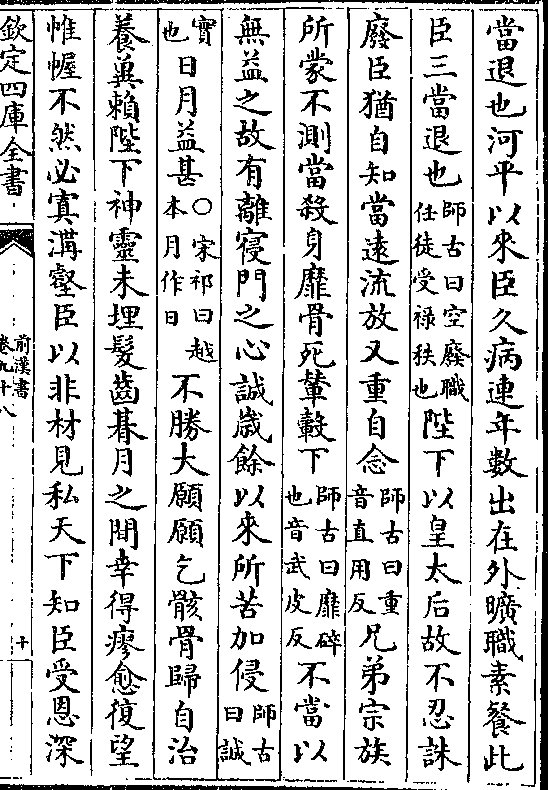 當退也河平以來臣久病連年數出在外曠職素餐此
臣三當退也師古曰空廢職任徒受祿秩也陛下以皇太后故不忍誅
廢臣猶自知當遠流放又重自念師古曰重音直用反兄弟宗族
所蒙不測當殺身靡骨死輦轂下師古曰靡碎也音武皮反不當以
無益之故有離寑門之心誠歲餘以來所苦加侵師古曰誠
實也日月益甚○宋祁曰越本月作日不勝大願願乞骸骨歸自治
養冀賴陛下神靈未埋髮齒朞月之間幸得瘳愈復望
帷幄不然必寘溝壑臣以非材見私天下知臣受恩深
欽定四庫全書
前漢書
卷九十八
十